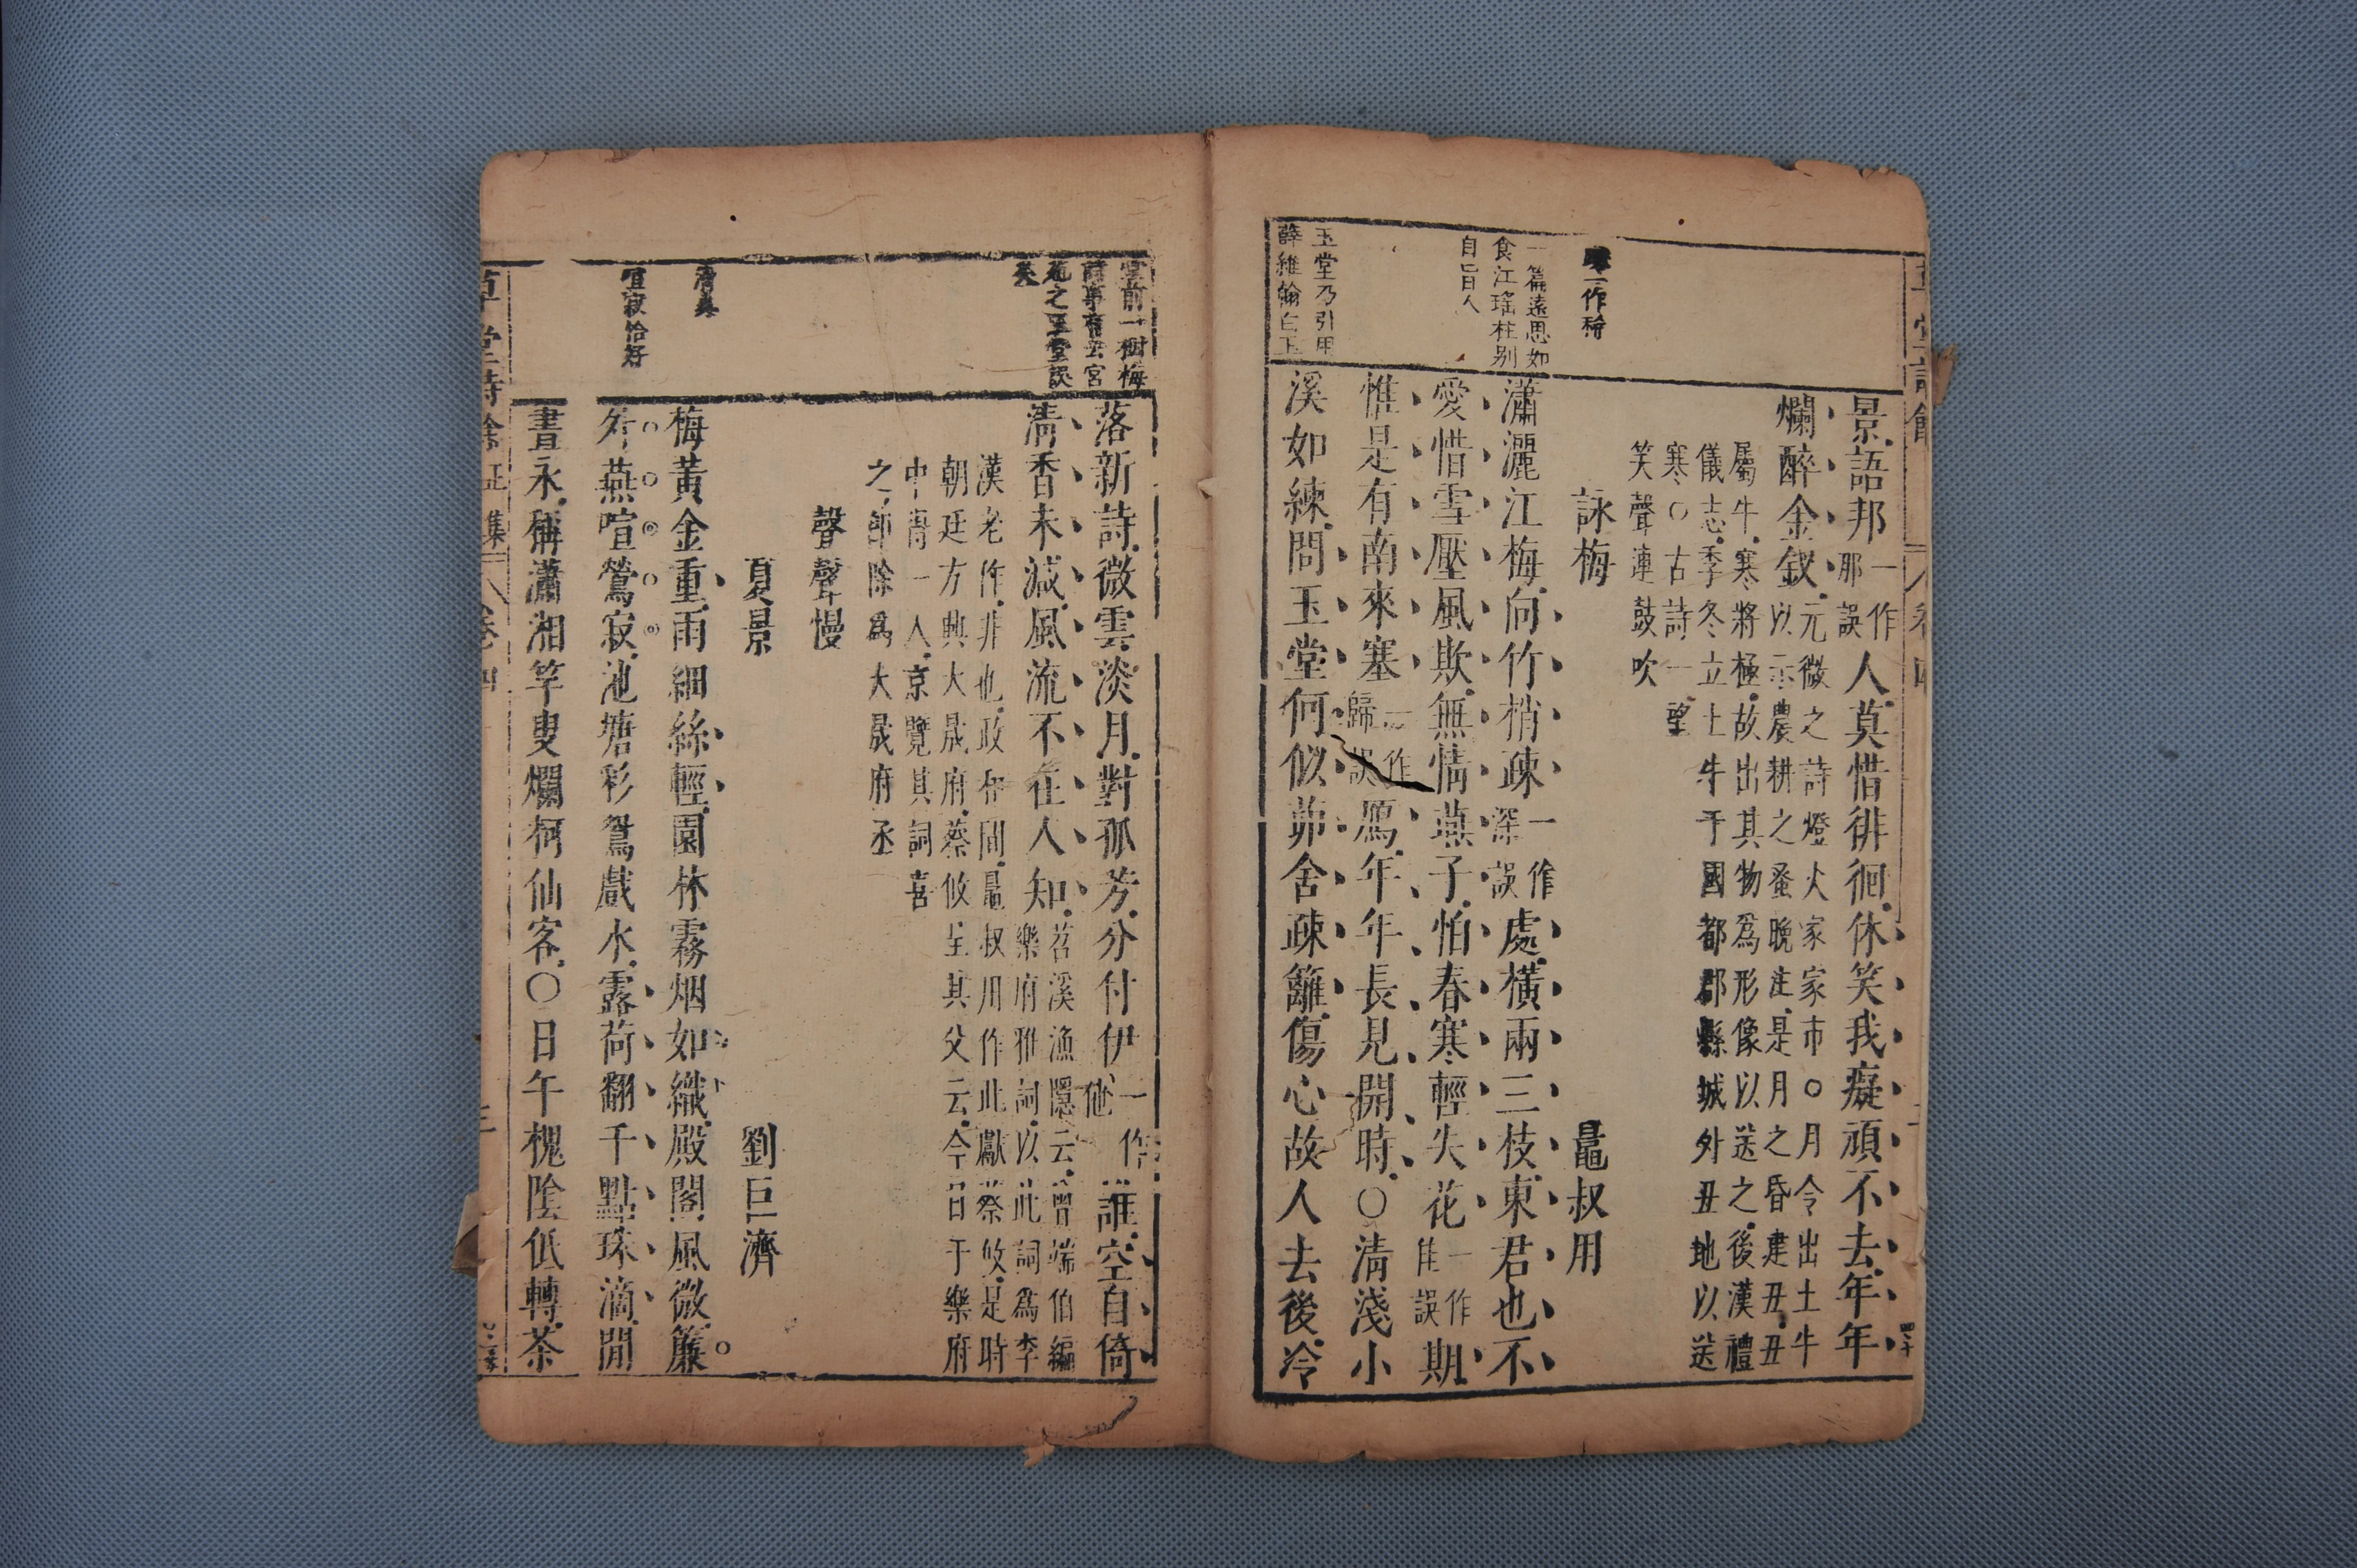 一作稊
一篇遠思如
食江瑤柱別
自一百人
玉堂乃引用
薛維翰白玉
景語邦一作那誤人莫惜徘徊休笑我癡頑不去年年
爛醉金釵元微之詩燈火家家市○月令出土牛
以示農耕之蚤晚注是月之昏建丑丑
屬牛寒將極故出其物為形像以送之後漢禮
儀志季冬立土牛于國都郡縣城外丑地以送
寒○古詩一望
笑聲連鼓吹
詠梅 鼂叔用
瀟灑江梅向竹梢疎一作深誤處橫兩三枝東君也不
愛惜雪壓風欺無情燕子怕春寒輕失花一作佳誤期
惟是有南來塞一作歸誤鴈年年長見開時○清淺小
溪如練問玉堂何似茆舍疎籬傷心故人去後冷
堂前一樹梅
詩事有云宮
苑之玉堂誤
矣
清真
喧寂恰好
落新詩微雲淡月對孤芳分付伊一作他誰空自倚
清香未減風流不在人知苕溪漁隱云曾端伯編
樂府雅詞以此詞為李
漢老作非也政和間鼂叔用作此獻蔡攸是時
朝廷方興大晟府蔡攸呈其父云今日于樂府
中得一人京覽其詞喜
之即除為大晟府丞
聲聲慢
夏景 劉巨濟
梅黃金重雨細絲輕園林霧烟如織殿閣風微簾
外燕喧鶯寂池塘彩鴛戲水露荷翻千點珠滴閒
晝永稱瀟湘竿叟爛柯仙客○日午槐陰低轉茶
草堂詩餘正集 卷四